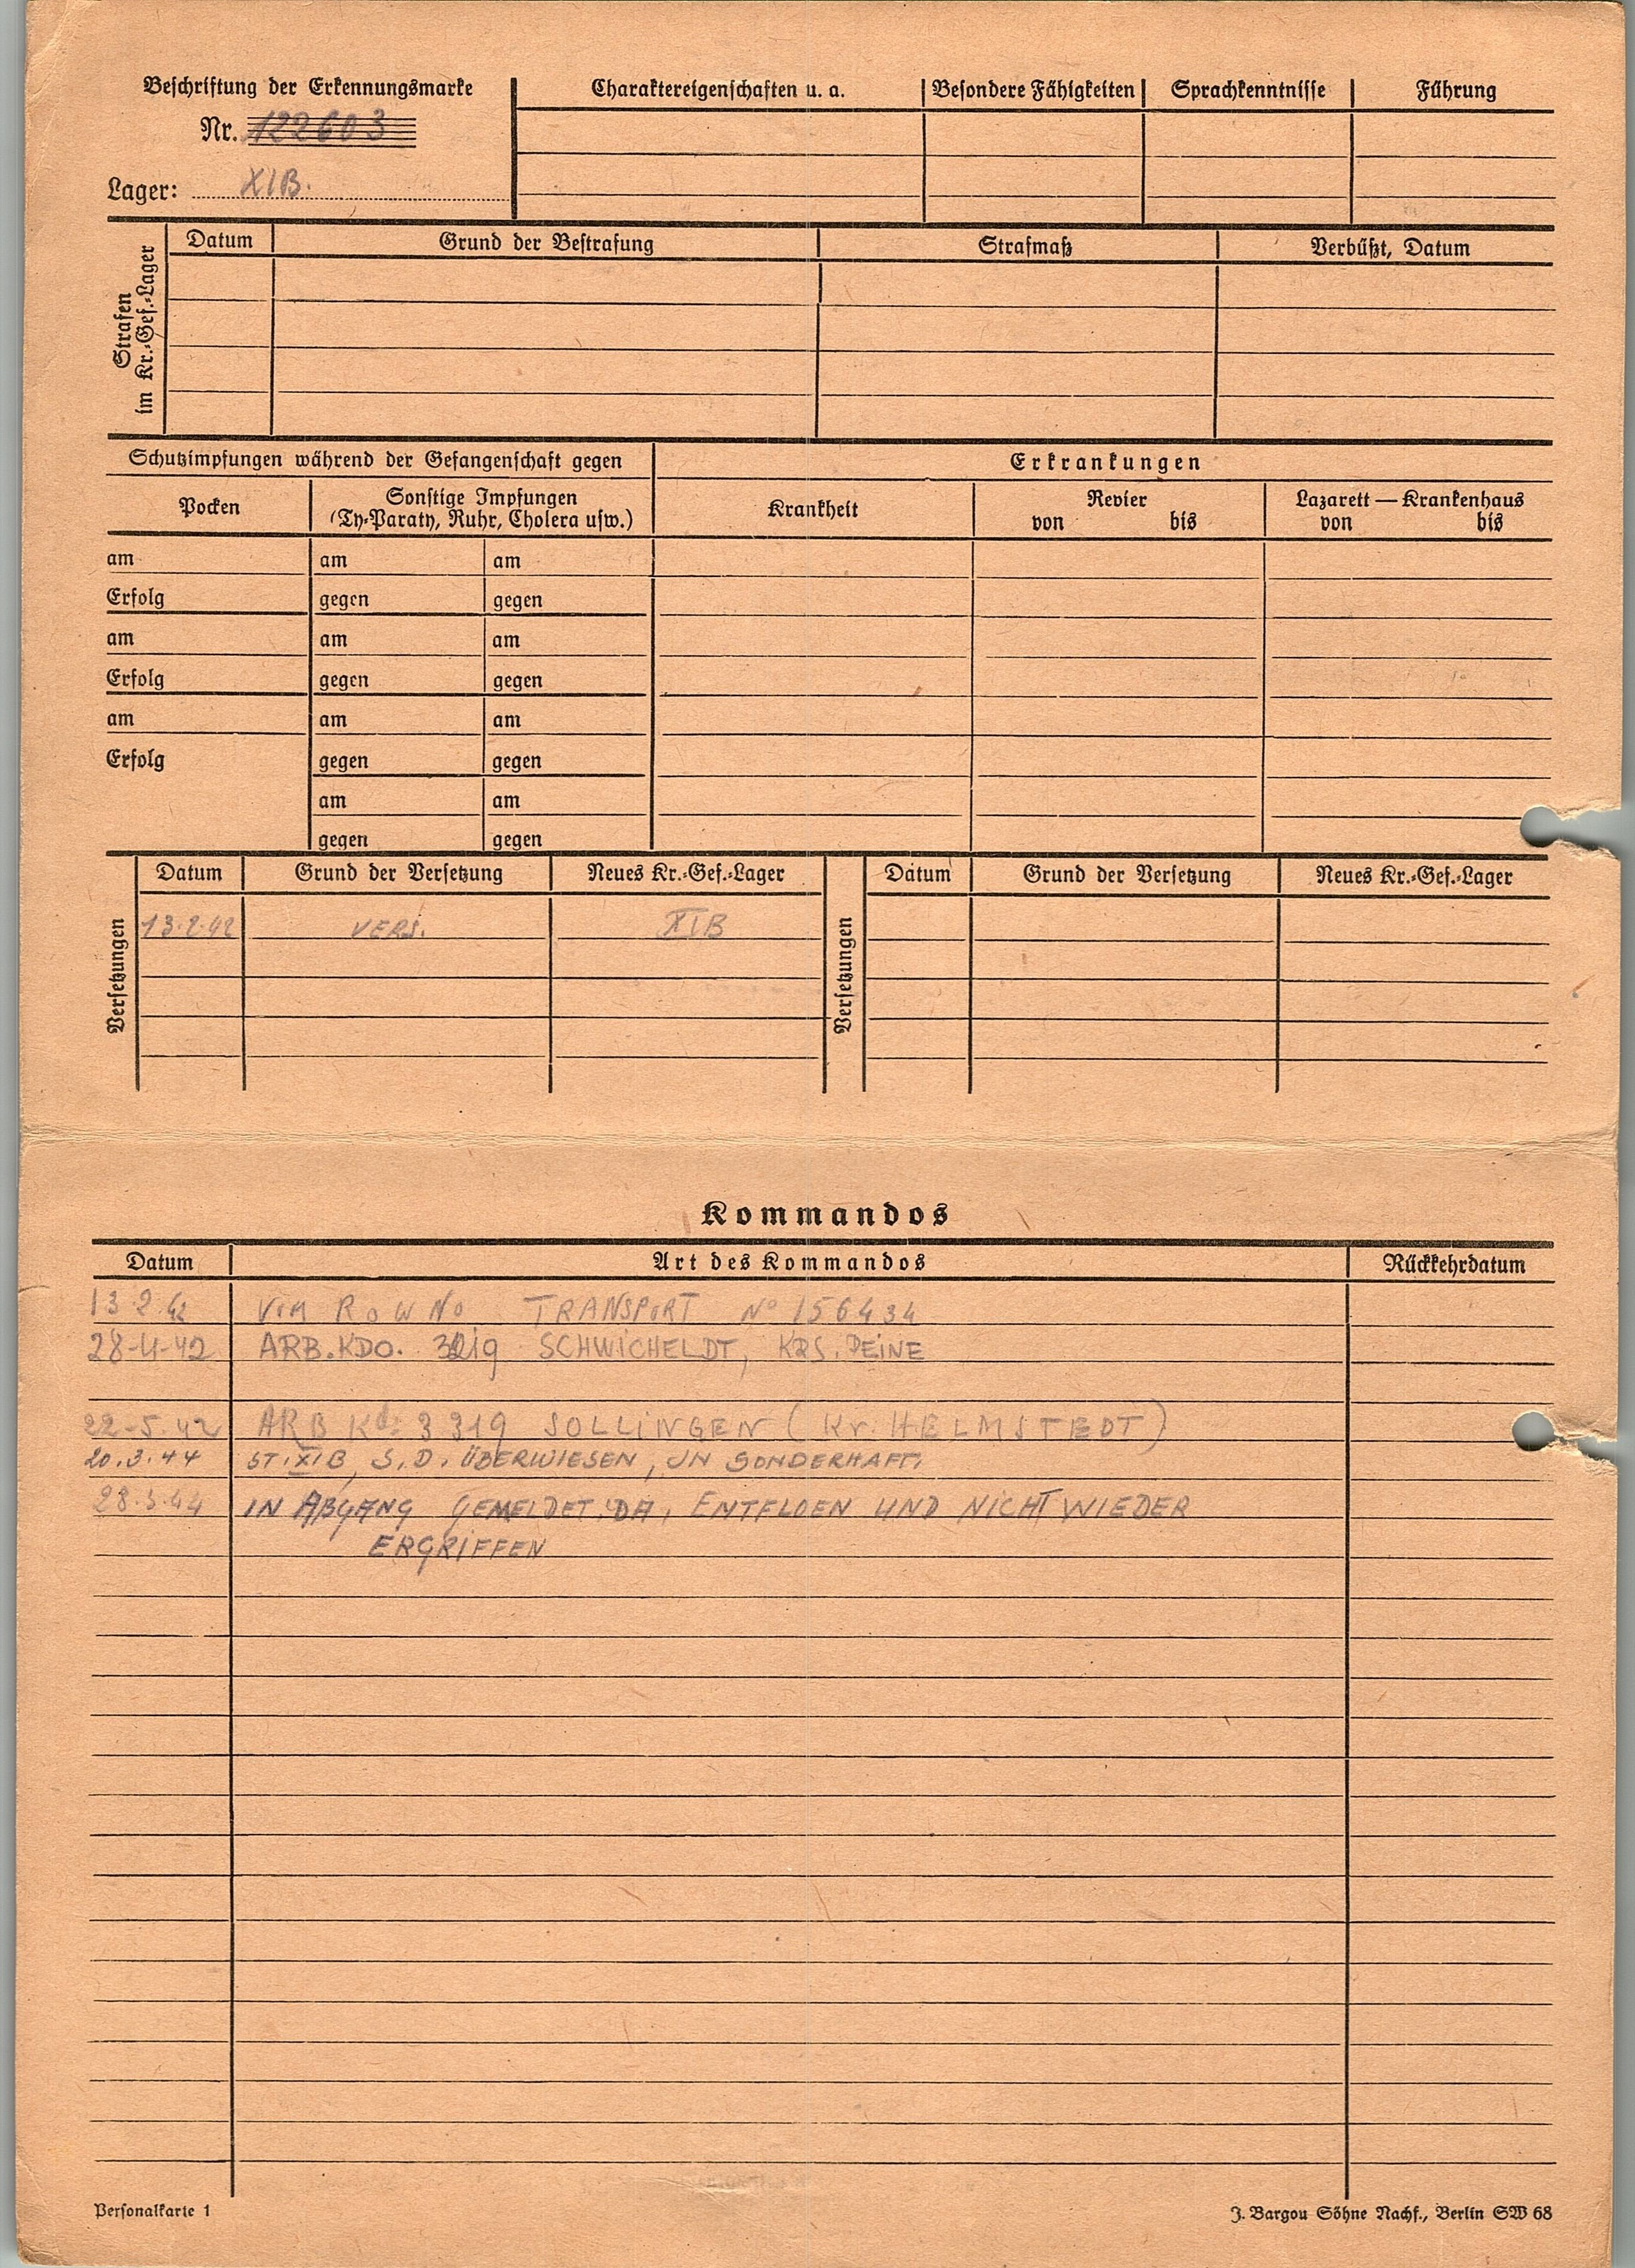 Beschriftung der Erkennungsmarke
Nr. 122603
Lager: XIB.
Charaktereigenschaften u. a. Besondere Fähigkeiten Sprachkenntnisse Führung
Strafen
im Kr.-Gef.-Lager
Datum Grund der Bestrafung Strafmaß Verbüßt, Datum
Schutzimpfungen während der Gefangenschaft gegen Erkrankungen
Pocken
Sonstige Impfungen
(Ty-Paraty, Ruhr, Cholera usw.)
Krankheit
Revier
von bis
Lazarett — Krankenhaus
von bis
am am am
Erfolg gegen gegen
am am am
Erfolg gegen gegen
am am am
Erfolg gegen gegen
am am
gegen gegen
Versetzungen
Datum Grund der Versetzung Neues Kr.-Gef.-Lager
13.2.42 VERS. XIB
Versetzungen
Datum Grund der Versetzung Neues Kr.-Gef.-Lager
Kommandos
Datum Art des Kommandos Rückkehrdatum
13 2 42 VOM ROWNO TRANSPORT No 156434
28-4-42 ARB.KDO. SCHWICHELDT, KRS. PEINE
22-5.42 ARB Kdo 3319 SOLLINGEN (Kr. HELMSTEDT)
20.3.44 ST.XIB, S.D. ÜBERWIESEN, IN SONDERHAFT.
28.3.44 IN ABGANG GEMELDET, DA, ENTFLOEN UND NICHT WIEDER
ERGRIFFEN
Personalkarte 1
J. Bargou Söhne Nachf., Berlin SW 68